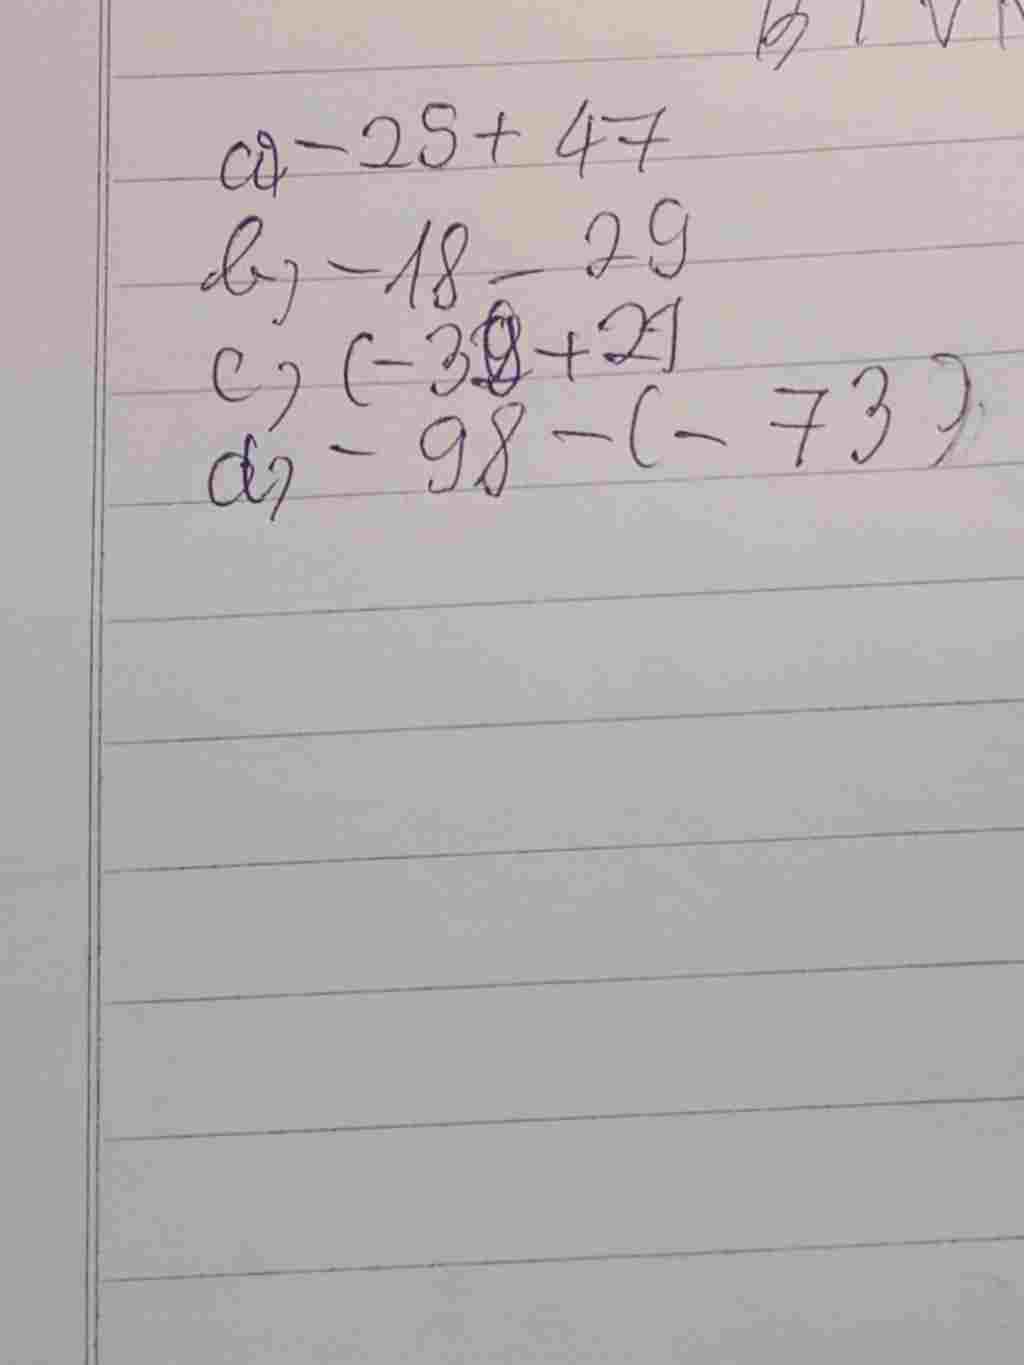 BTVN
a, - 25 + 47
b, - 18 - 29
c, (- 38 + 21
d, - 98 - (- 73)